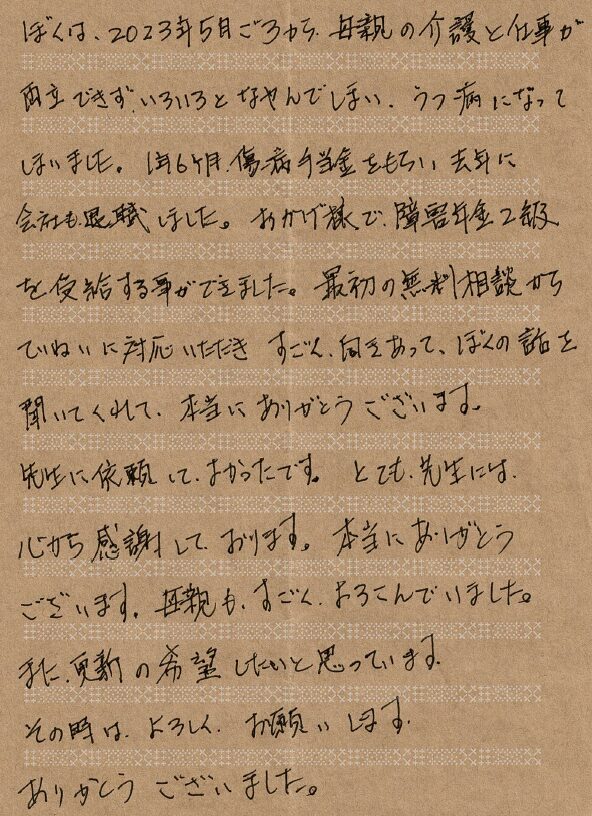 ぼくは、2023年5月ごろから、母親の介護と仕事が
両立できず、いろいろとなやんでしまい、うつ病になって
しまいました。1年6ヶ月、傷病手当金をもらい去年に
会社も退職しました。おかげ様で、障害年金2級
を受給する事ができました。最初の無料相談から
ていねいに対応いただきすごく、向きあって、ぼくの話を
聞いてくれて、本当にありがとうございます。
先生に依頼して、よかったです。とても、先生には、
心から感謝して、おります。本当にありがとう
ございます。母親も、すごく、よろこんでいました。
また、更新の希望したいと思っています。
その時は、よろしく、お願いします。
ありがとうございました。